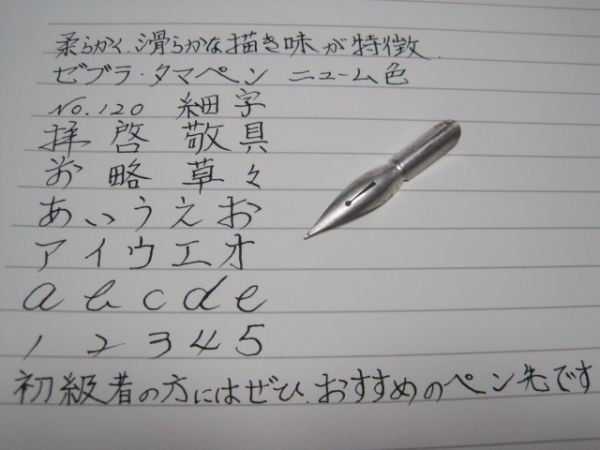 柔らかく、滑らかな描き味が特徴.
ゼブラ・タマペン ニューム色
No.120 細字
拝啓 敬具
前略 草々
あいうえお
アイウエオ
a b c d e
1 2 3 4 5
初級者の方にはぜひ、おすすめのペン先です